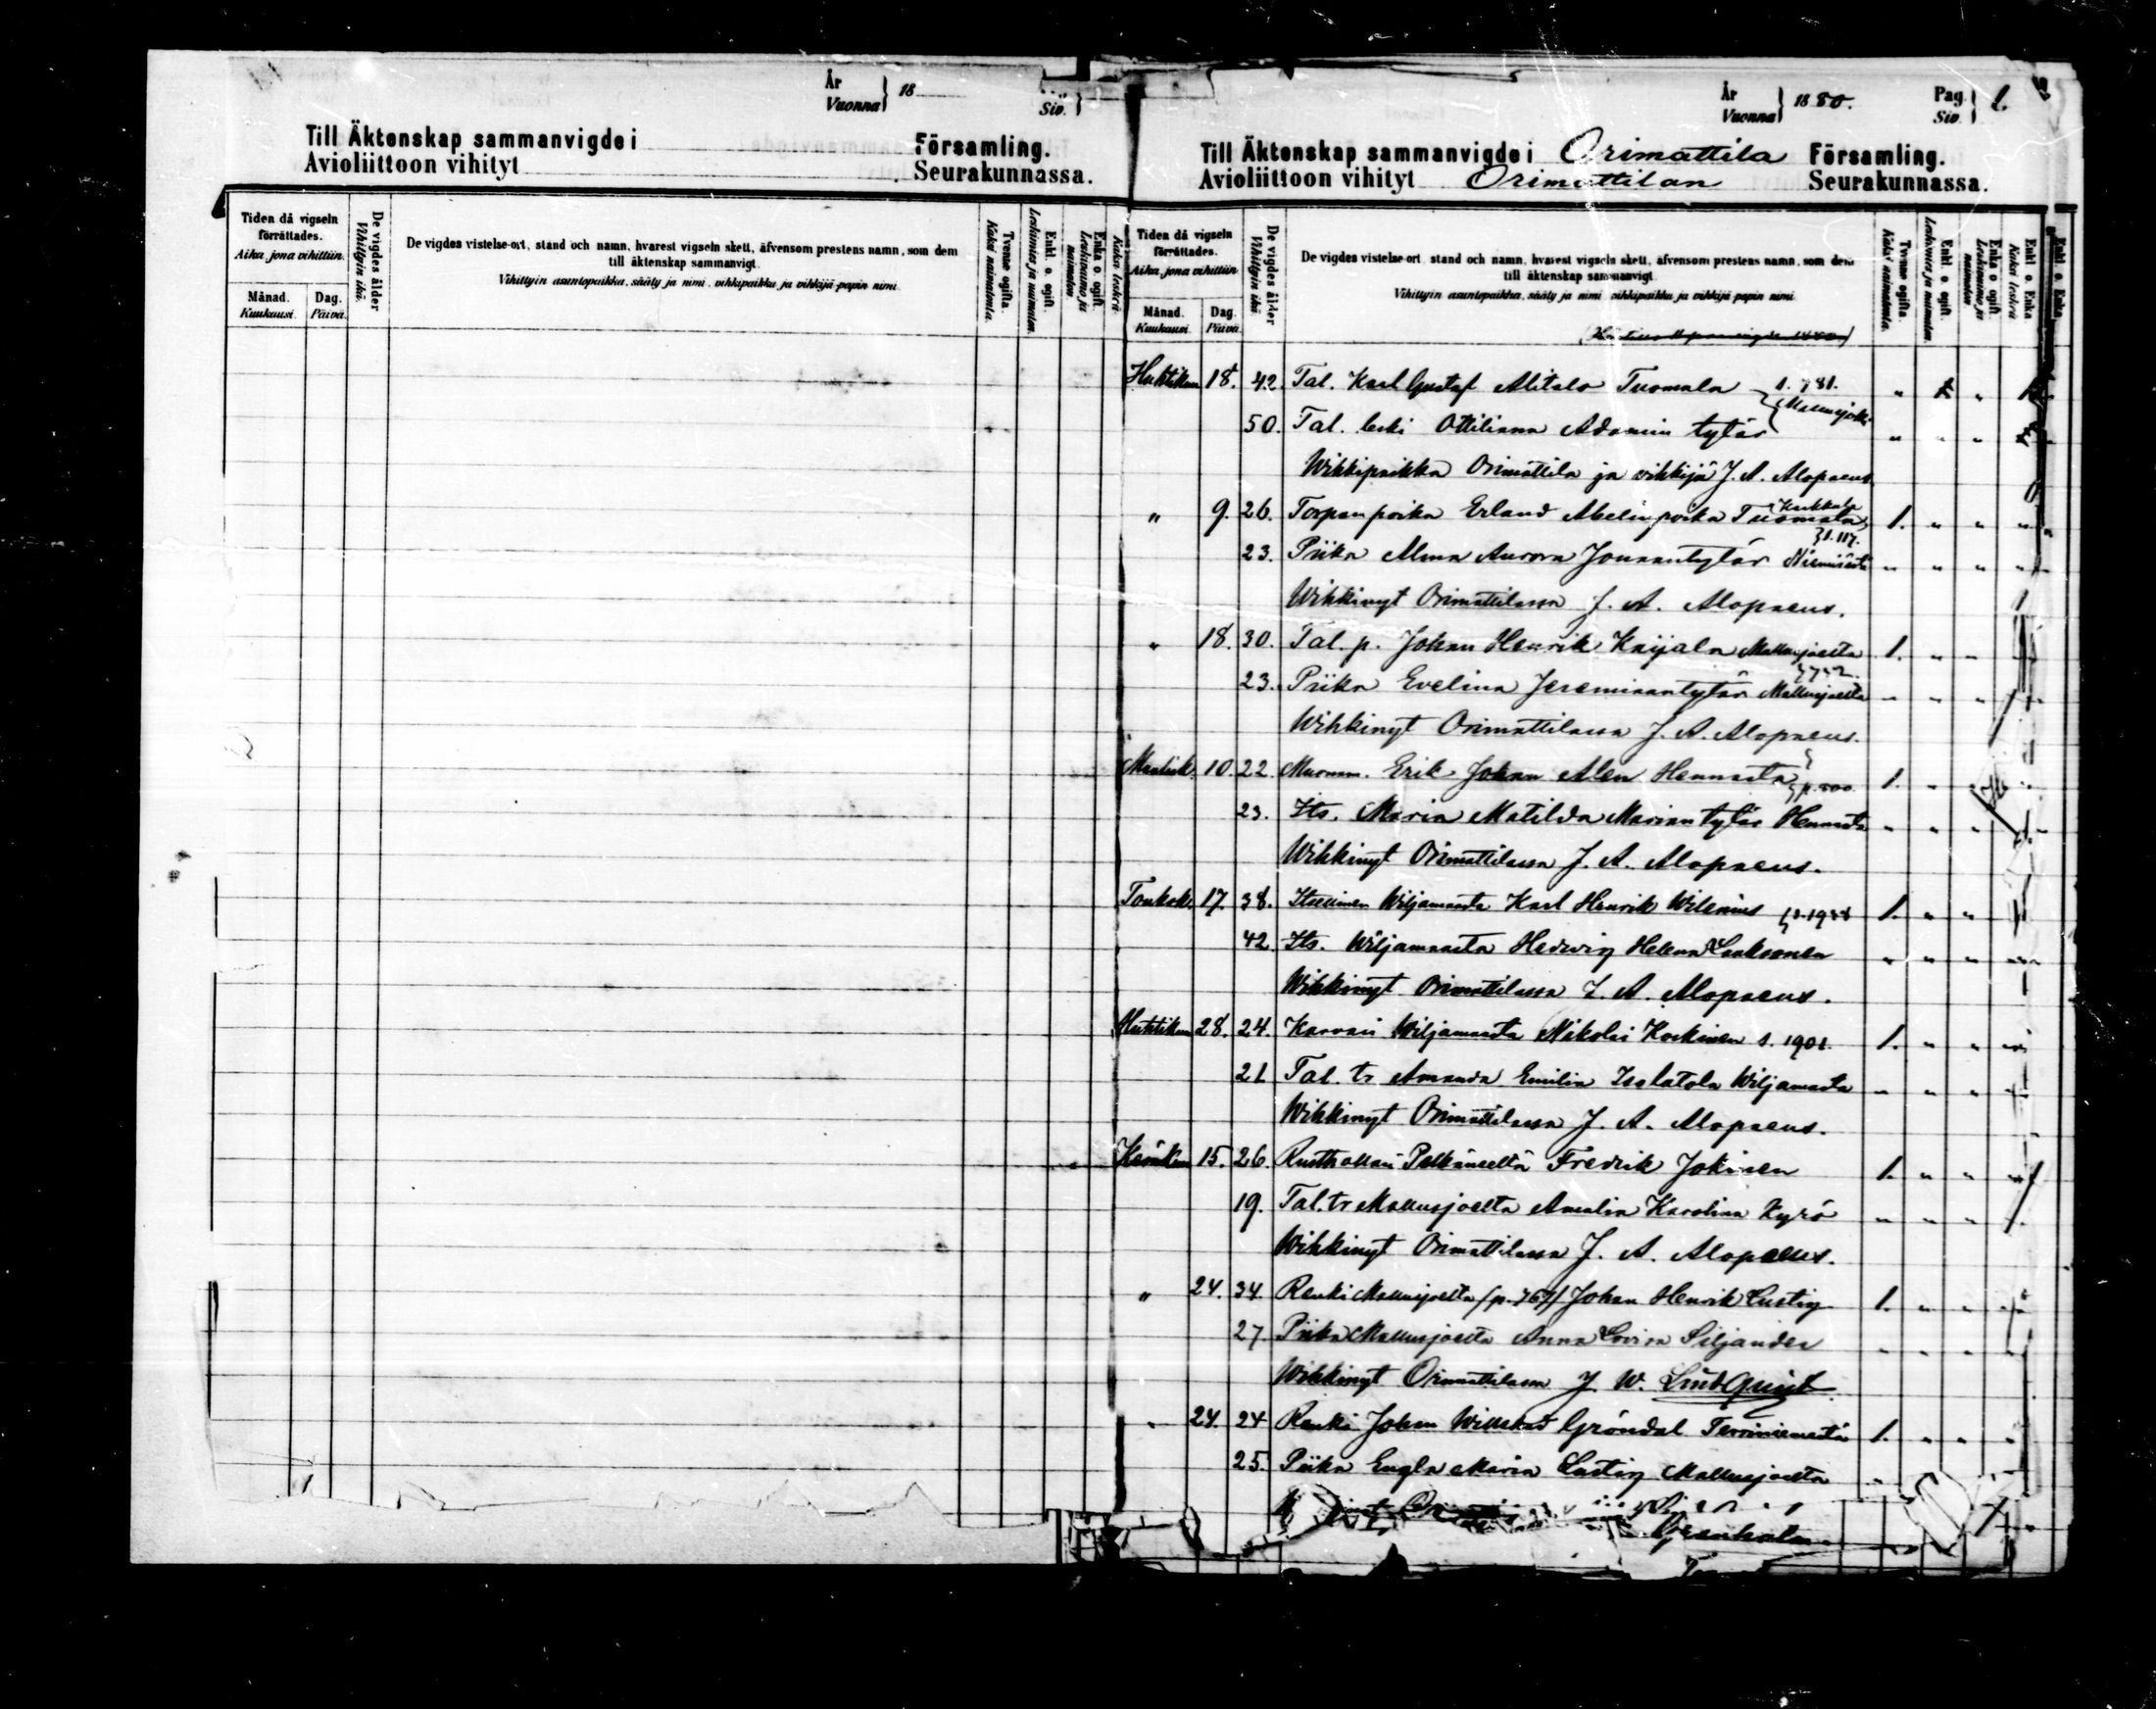 År
Vuonna } 18
Siv. }
Till Äktenskap sammanvigde i Församling.
Avioliittoon vihityt Seurakunnassa.
Tiden då vigseln förrättades.
Aika, jona vihittiin.
Månad. Kuukausi.
Dag. Päivä.
De vigdes ålder
Vihittyin ikä.
De vigdes vistelse-ort, stand och namn, hvarest vigseln skett, äfvensom prestens namn, som dem
till äktenskap sammanvigt.
Vihittyin asuntopaikka, sääty ja nimi, vihkipaikka ja vihkijä-papin nimi.
Tvenne ogifta.
Kaksi naimatonta.
Enkl. o. ogift.
Leskimies ja naimaton.
Enka o. ogift.
Leskivaimo ja naimaton
Kaksi leskeä.
År
Vuonna } 1880.
Pag.
Siv. } 1.
Till Äktenskap sammanvigde i Orimattila Församling.
Avioliittoon vihityt Orimattilan Seurakunnassa.
Tiden då vigseln förrättades.
Aika, jona vihittiin
Månad. Kuukausi.
Dag. Päivä.
De vigdes ålder
Vihittyin ikä.
De vigdes vistelse-ort, stand och namn, hvarest vigseln skett, äfvensom prestens namn, som dem
till äktenskap sammanvigt.
Vihittyin asuntopaikka, sääty ja nimi, vihkipaikka ja vihkijä-papin nimi
Tvenne ogifta.
Kaksi naimatonta.
Enkl. o. ogift.
Leskimies ja naimaton.
Enka o. ogift.
Leskivaimo ja naimaton
Enkl. o. Enka
Kaksi leskeä
Huhtikuu 18. 42. Tal. Karl Gustaf Alitalo Tuomala s. 781.
50. Tal. leski Ottiliana Adamin tytär Mallusjoki
Wihkipaikka Orimattila ja vihkijä J. A. Alopaeus
" 9. 26. Torpan poika Erland Abelin poika Tuomala Kukkola 1. " " "
23. Piika Alma Aurora Jonaantytär Niemistä s. 117. " " " "
Wihkinyt Orimattilassa J. A. Alopaeus.
" 18. 30. Tal. p. Johan Henrik Kaijala Mallusjoelta 1. " "
23. Piika Evelina Jeremiaantytär Mallusjoelta " " "
Wihkinyt Orimattilassa J. A. Alopaeus.
Maalisk. 10. 22. Muonam. Erik Johan Alen Hennasta 1. "
23. Its. Maria Matilda Marian tytär Hennasta " " "
Wihkinyt Orimattilassa J. A. Alopaeus.
Toukok. 17. 38. Itsellinen Wiljamaasta Karl Henrik Wilenius 1. " "
42. Its. Wiljamaasta Hedvig Helena Laaksonen " " "
Wihkinyt Orimattilassa J. A. Alopaeus.
Huhtikuu 28. 24. Karvari Wiljamaasta Nikolai Koskinen s. 1901. 1. " "
21 Tal. tr Amanda Emilia Isolatola Wiljamaasta " " "
Wihkinyt Orimattilassa J. A. Alopaeus.
Kesäkuu 15. 26. Rusthollari Pälkäneeltä Fredrik Jokinen 1. " "
19. Tal. tr Mallusjoelta Amalia Karolina Kyrö " " "
Wihkinyt Orimattilassa J. A. Alopaeus.
" 24. 34. Renki Mallusjoelta (p. 767) Johan Henrik Lustig 1. " "
27 Piika Mallusjoelta Anna Lovisa Siljander " " "
Wihkinyt Orimattilassa J. W. Lindquist
" 24. 24 Renki Johan Willehad Gröndal Terriniemestä 1. " " "
25. Piika Engla Maria Lustig Mallusjoelta "
Granholm